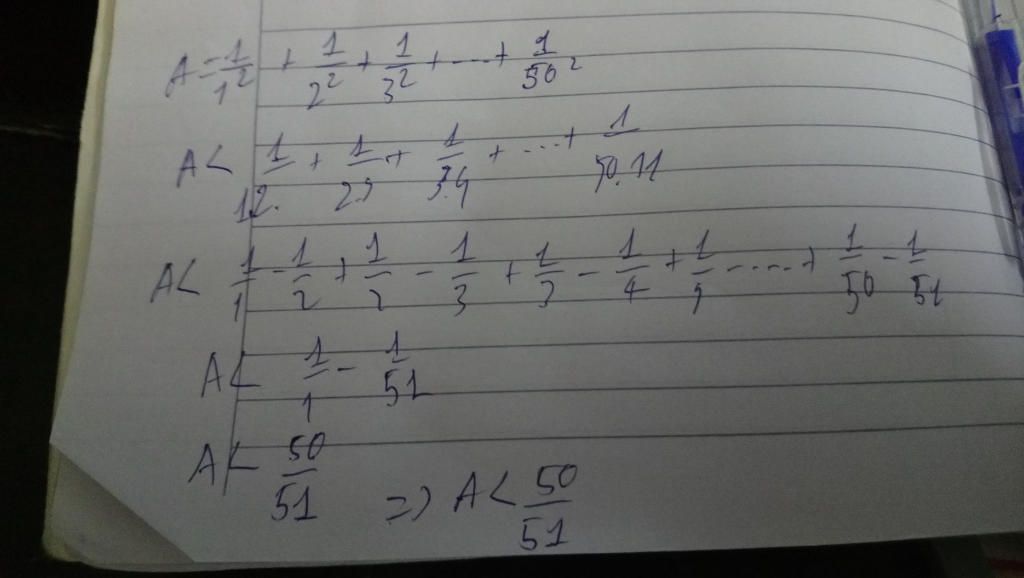 A = 1/1² + 1/2² + 1/3² + .... + 1/50²
A < 1/1.2. + 1/2.3 + 1/3.4 + .... + 1/50.11
A < 1/1 - 1/2 + 1/2 - 1/3 + 1/3 - 1/4 + 1/5 - ..... + 1/50 - 1/51
A < 1/1 - 1/51
A < 50/51 => A < 50/51